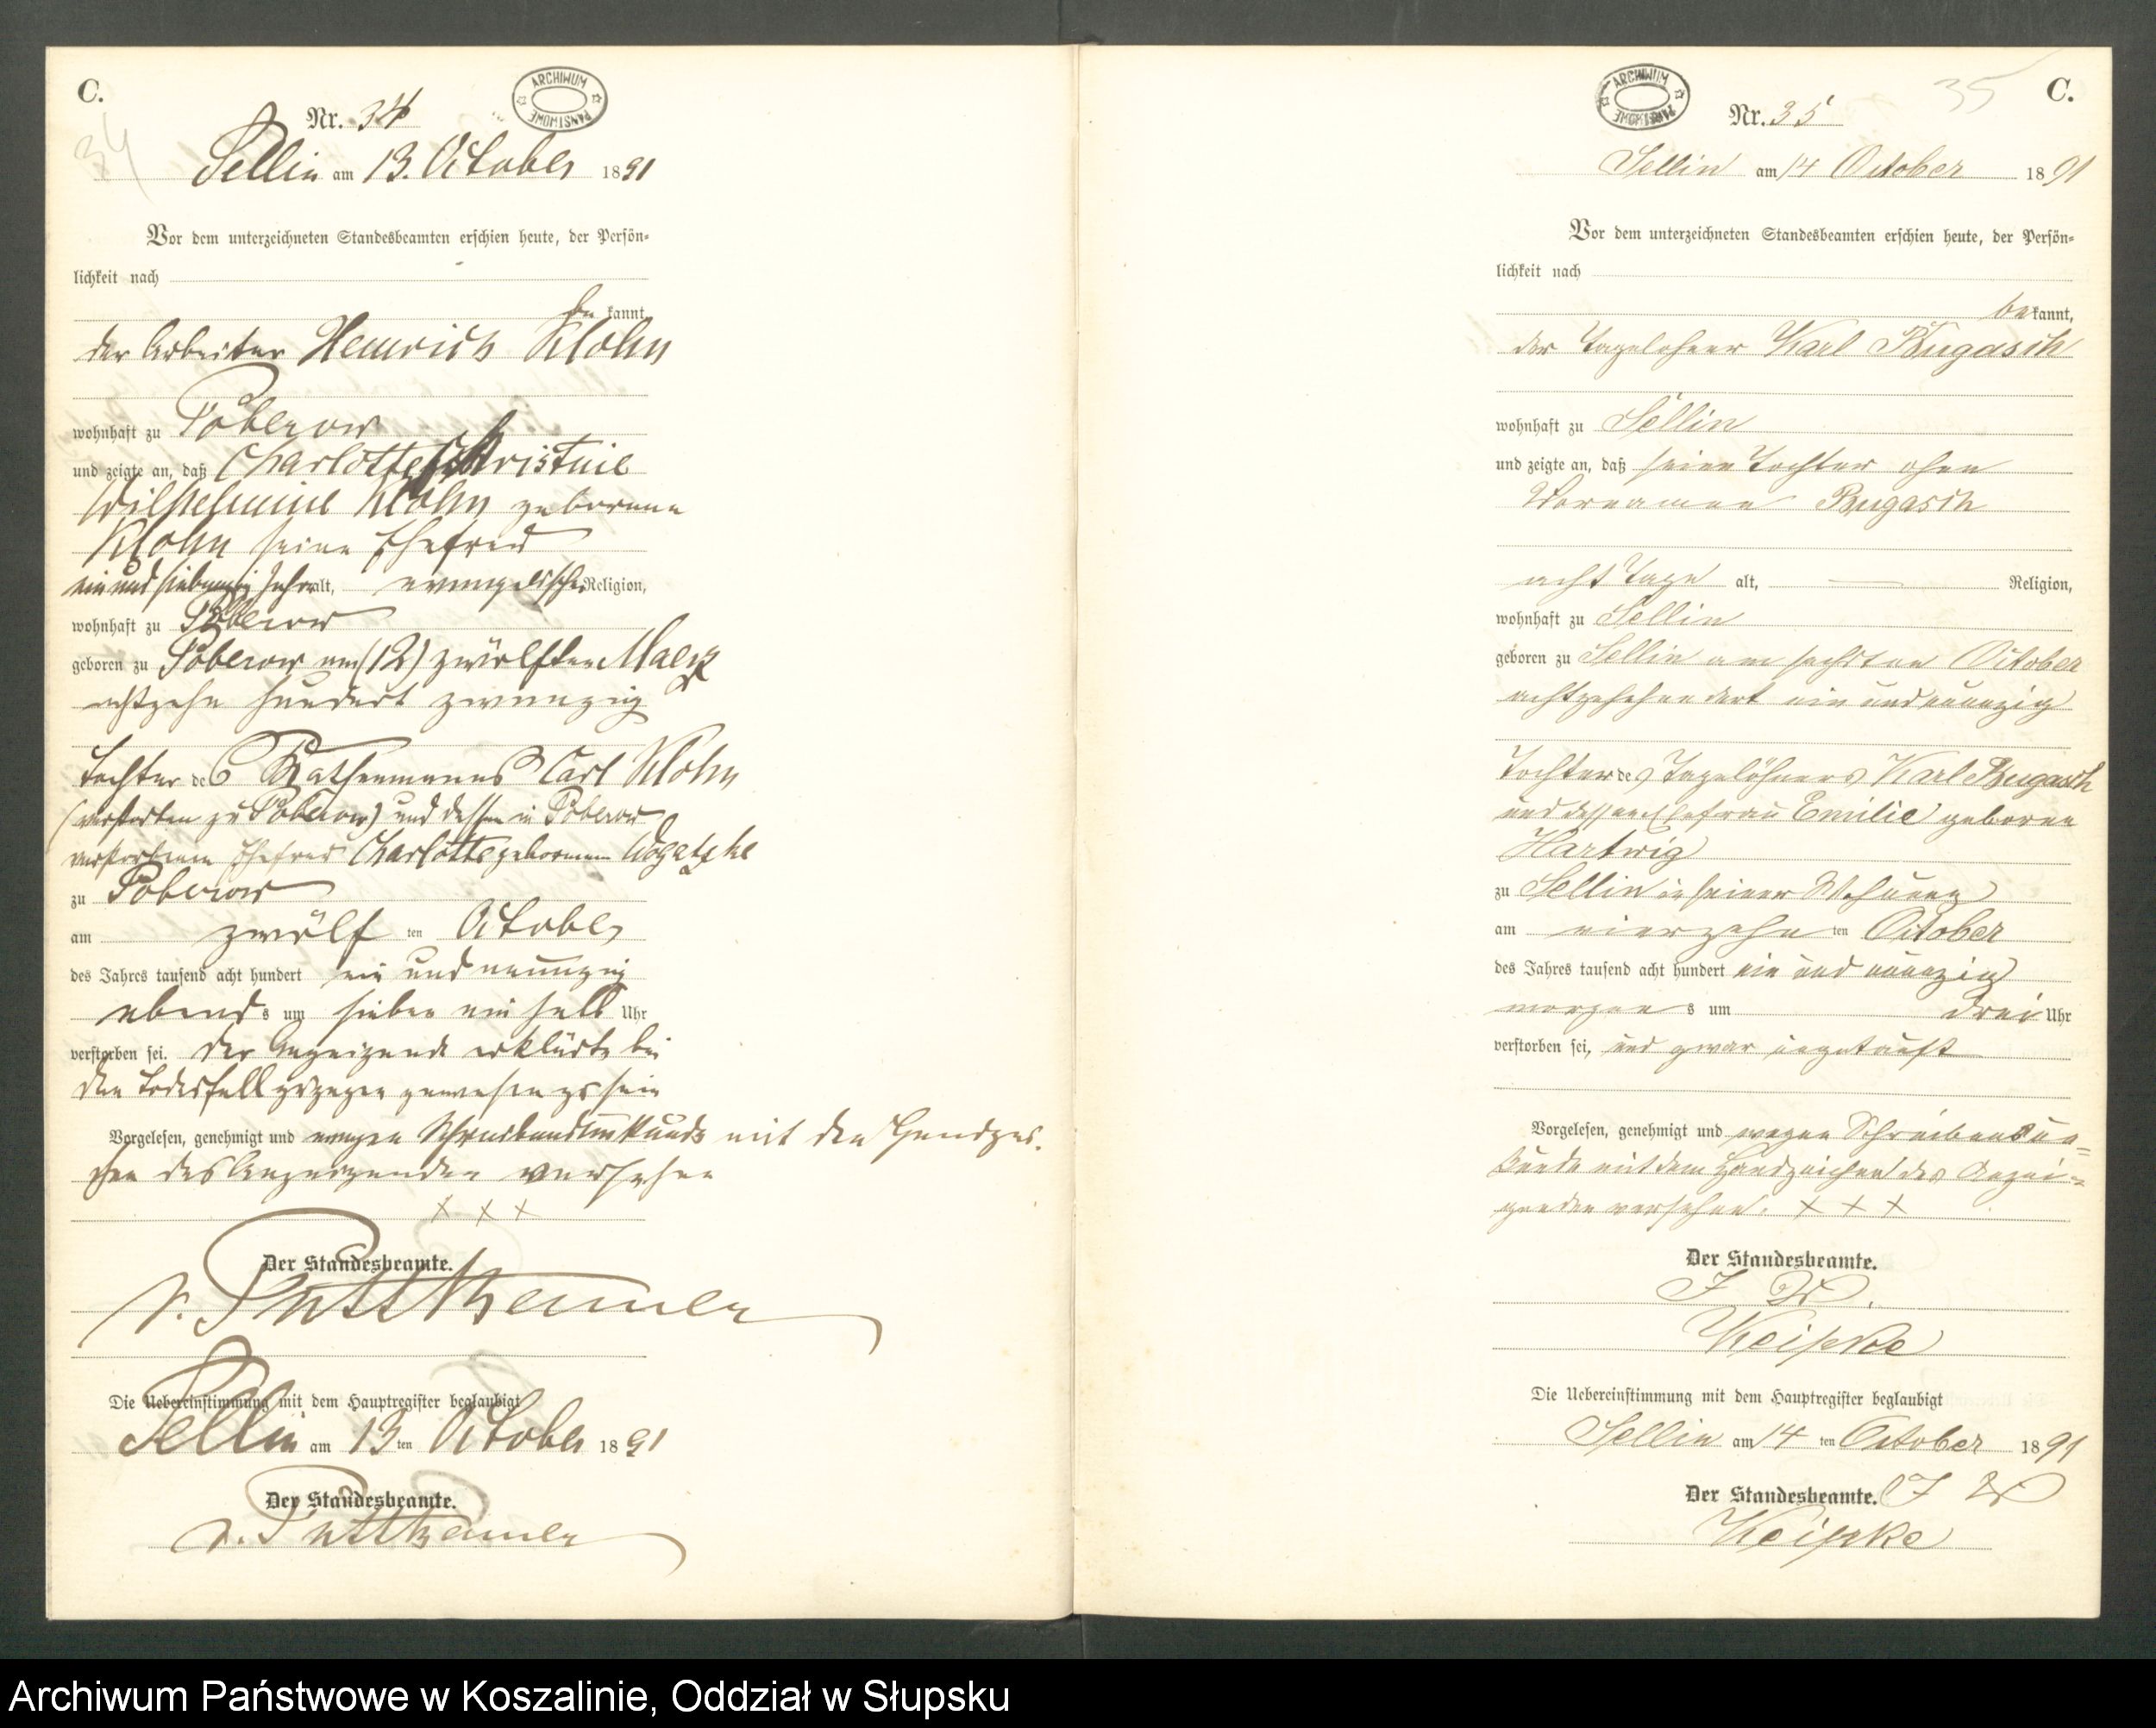 C.
ARCHIWUM PAŃSTWOWE
34
Nr. 34
Sellin am 13. October 1891
Vor dem unterzeichneten Standesbeamten erschien heute, der Persön-
lichkeit nach
be kannt,
der Arbeiter Heinrich Klohn
wohnhaft zu Poberow
und zeigte an, daß Charlotte Christine
Wilhelmine Klohn geborene
Klohn seine Ehefrau
ein und siebenzig Jahr alt, evangelischer Religion,
wohnhaft zu Poberow
geboren zu Poberow am (12) zwölften Maerz
achtzehn hundert zwanzig
Tochter des Kathenmanns Carl Klohn
(verstorben zu Poberow) und dessen in Poberow
verstorbenen Ehefrau Charlotte geborenen
zu Poberow
am zwölf ten October
des Jahres tausend acht hundert ein und neunzig
abends um sieben ein halb Uhr
verstorben sei. Der Anzeigende erklärte bei
den Todesfall zugegen gewesen zu sein
Vorgelesen, genehmigt und wegen Schreibensunkunde mit den Handzei-
chen des Anzeigenden versehen
+ + +
Der Standesbeamte.
v. Puttkamer
Die Uebereinstimmung mit dem Hauptregister beglaubigt
Sellin am 13 ten October 1891
Der Standesbeamte.
v. Puttkamer
35
C.
ARCHIWUM PAŃSTWOWE
Nr. 35
Sellin am 14 October 1891
Vor dem unterzeichneten Standesbeamten erschien heute, der Persön-
lichkeit nach
be kannt,
der Tagelohner Karl Bugasch
wohnhaft zu Sellin
und zeigte an, daß seine Tochter ohne
Vornamen Bugasch
acht Tage alt, — Religion,
wohnhaft zu Sellin
geboren zu Sellin am sechsten October
achtzehnhundert ein und neunzig
Tochter des Tagelöhners Karl Bugasch
und dessen Ehefrau Emilie geborene
Hartwig
zu Sellin in seiner Wohnung
am vierzehn ten October
des Jahres tausend acht hundert ein und neunzig
morgens um drei Uhr
verstorben sei, und zwar ungetauft
Vorgelesen, genehmigt und wegen Schreibensun=
kunde mit dem Handzeichen des Anzei=
genden versehen. + + +
Der Standesbeamte.
J W.
Die Uebereinstimmung mit dem Hauptregister beglaubigt
Sellin am 14 ten October 1891
Der Standesbeamte. J W
Archiwum Państwowe w Koszalinie, Oddział w Słupsku